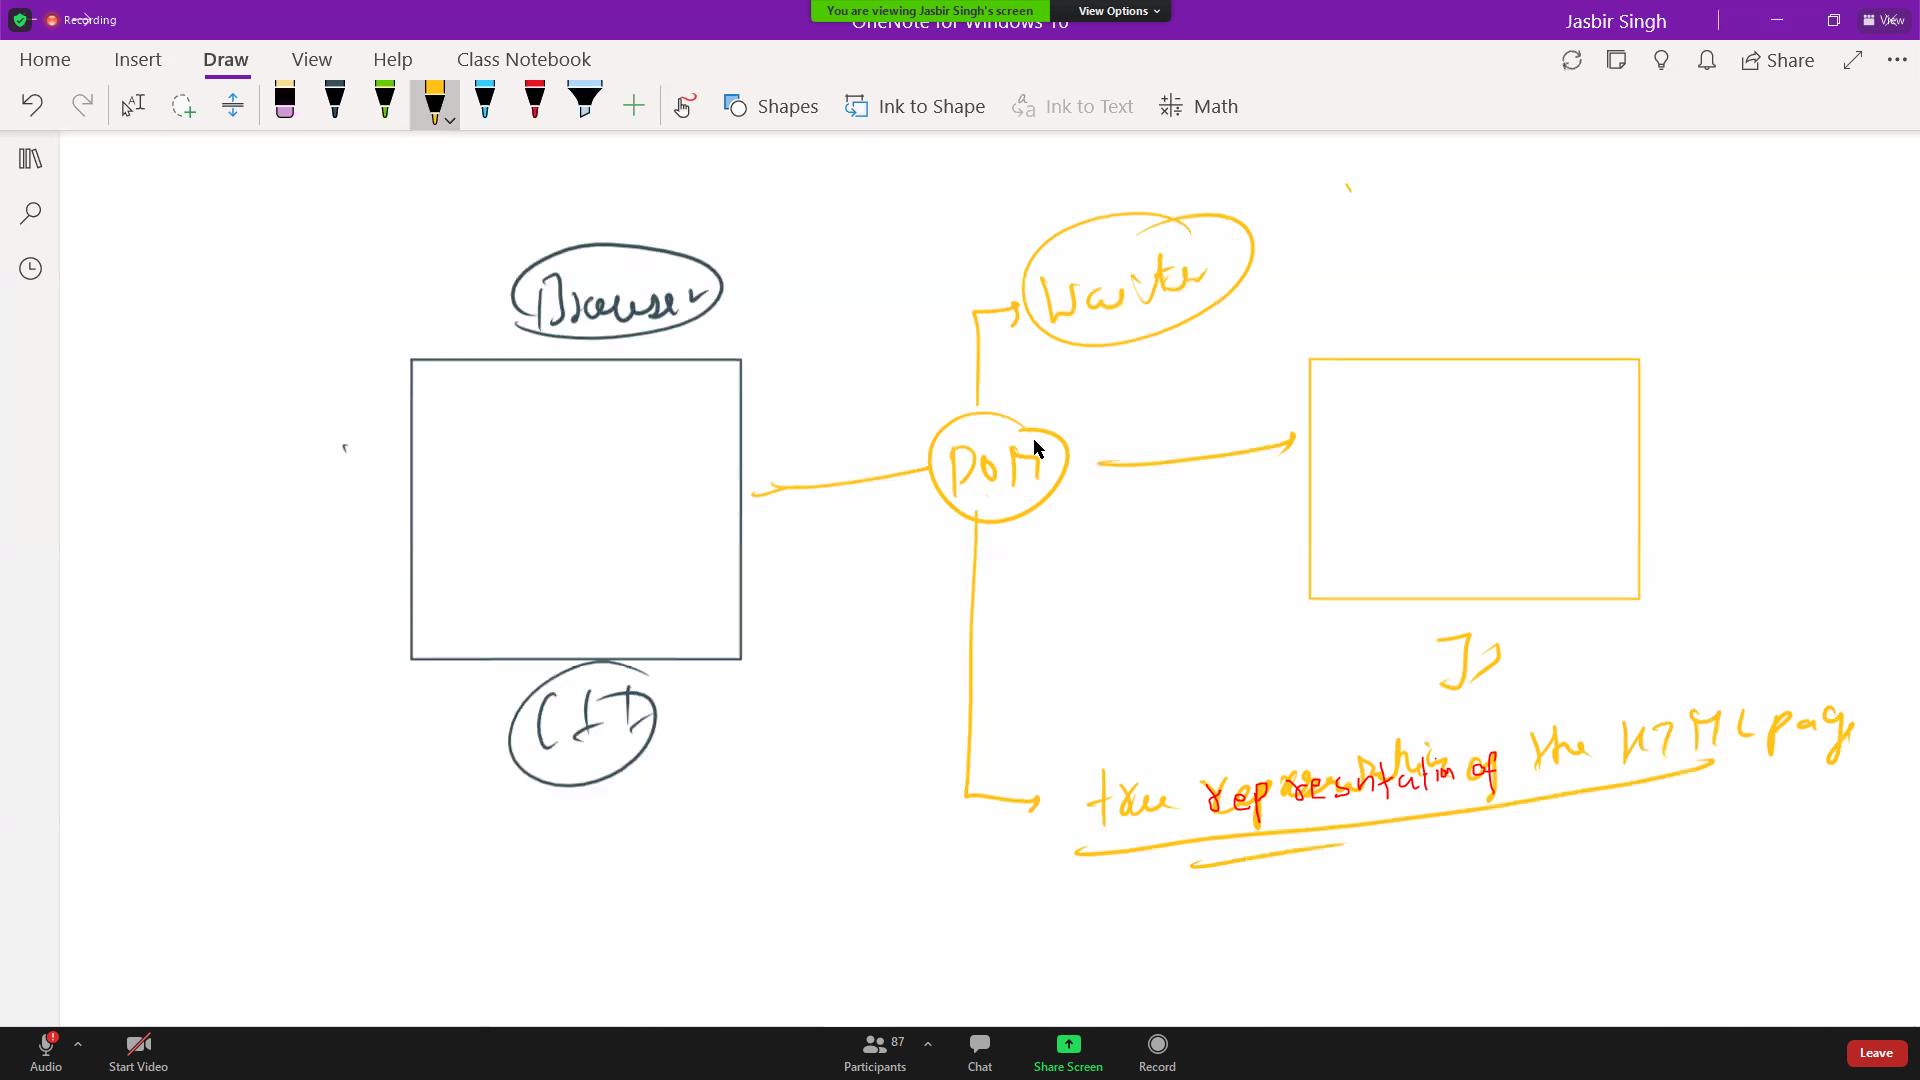 Recording
You are viewing Jasbir Singh's screen
View Options
OneNote for Windows 10
Jasbir Singh
View
Home
Insert
Draw
View
Help
Class Notebook
Share
Shapes
Ink to Shape
Ink to Text
Math
Browser
Waiter
DOM
JS
tree representation of the HTML page
Audio
Start Video
Participants
87
Chat
Share Screen
Record
Leave